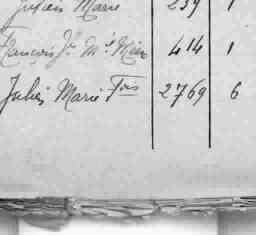 Julien Marie 239 1
François Je. Me. 414 1
Julien Marie Fois 2769 6